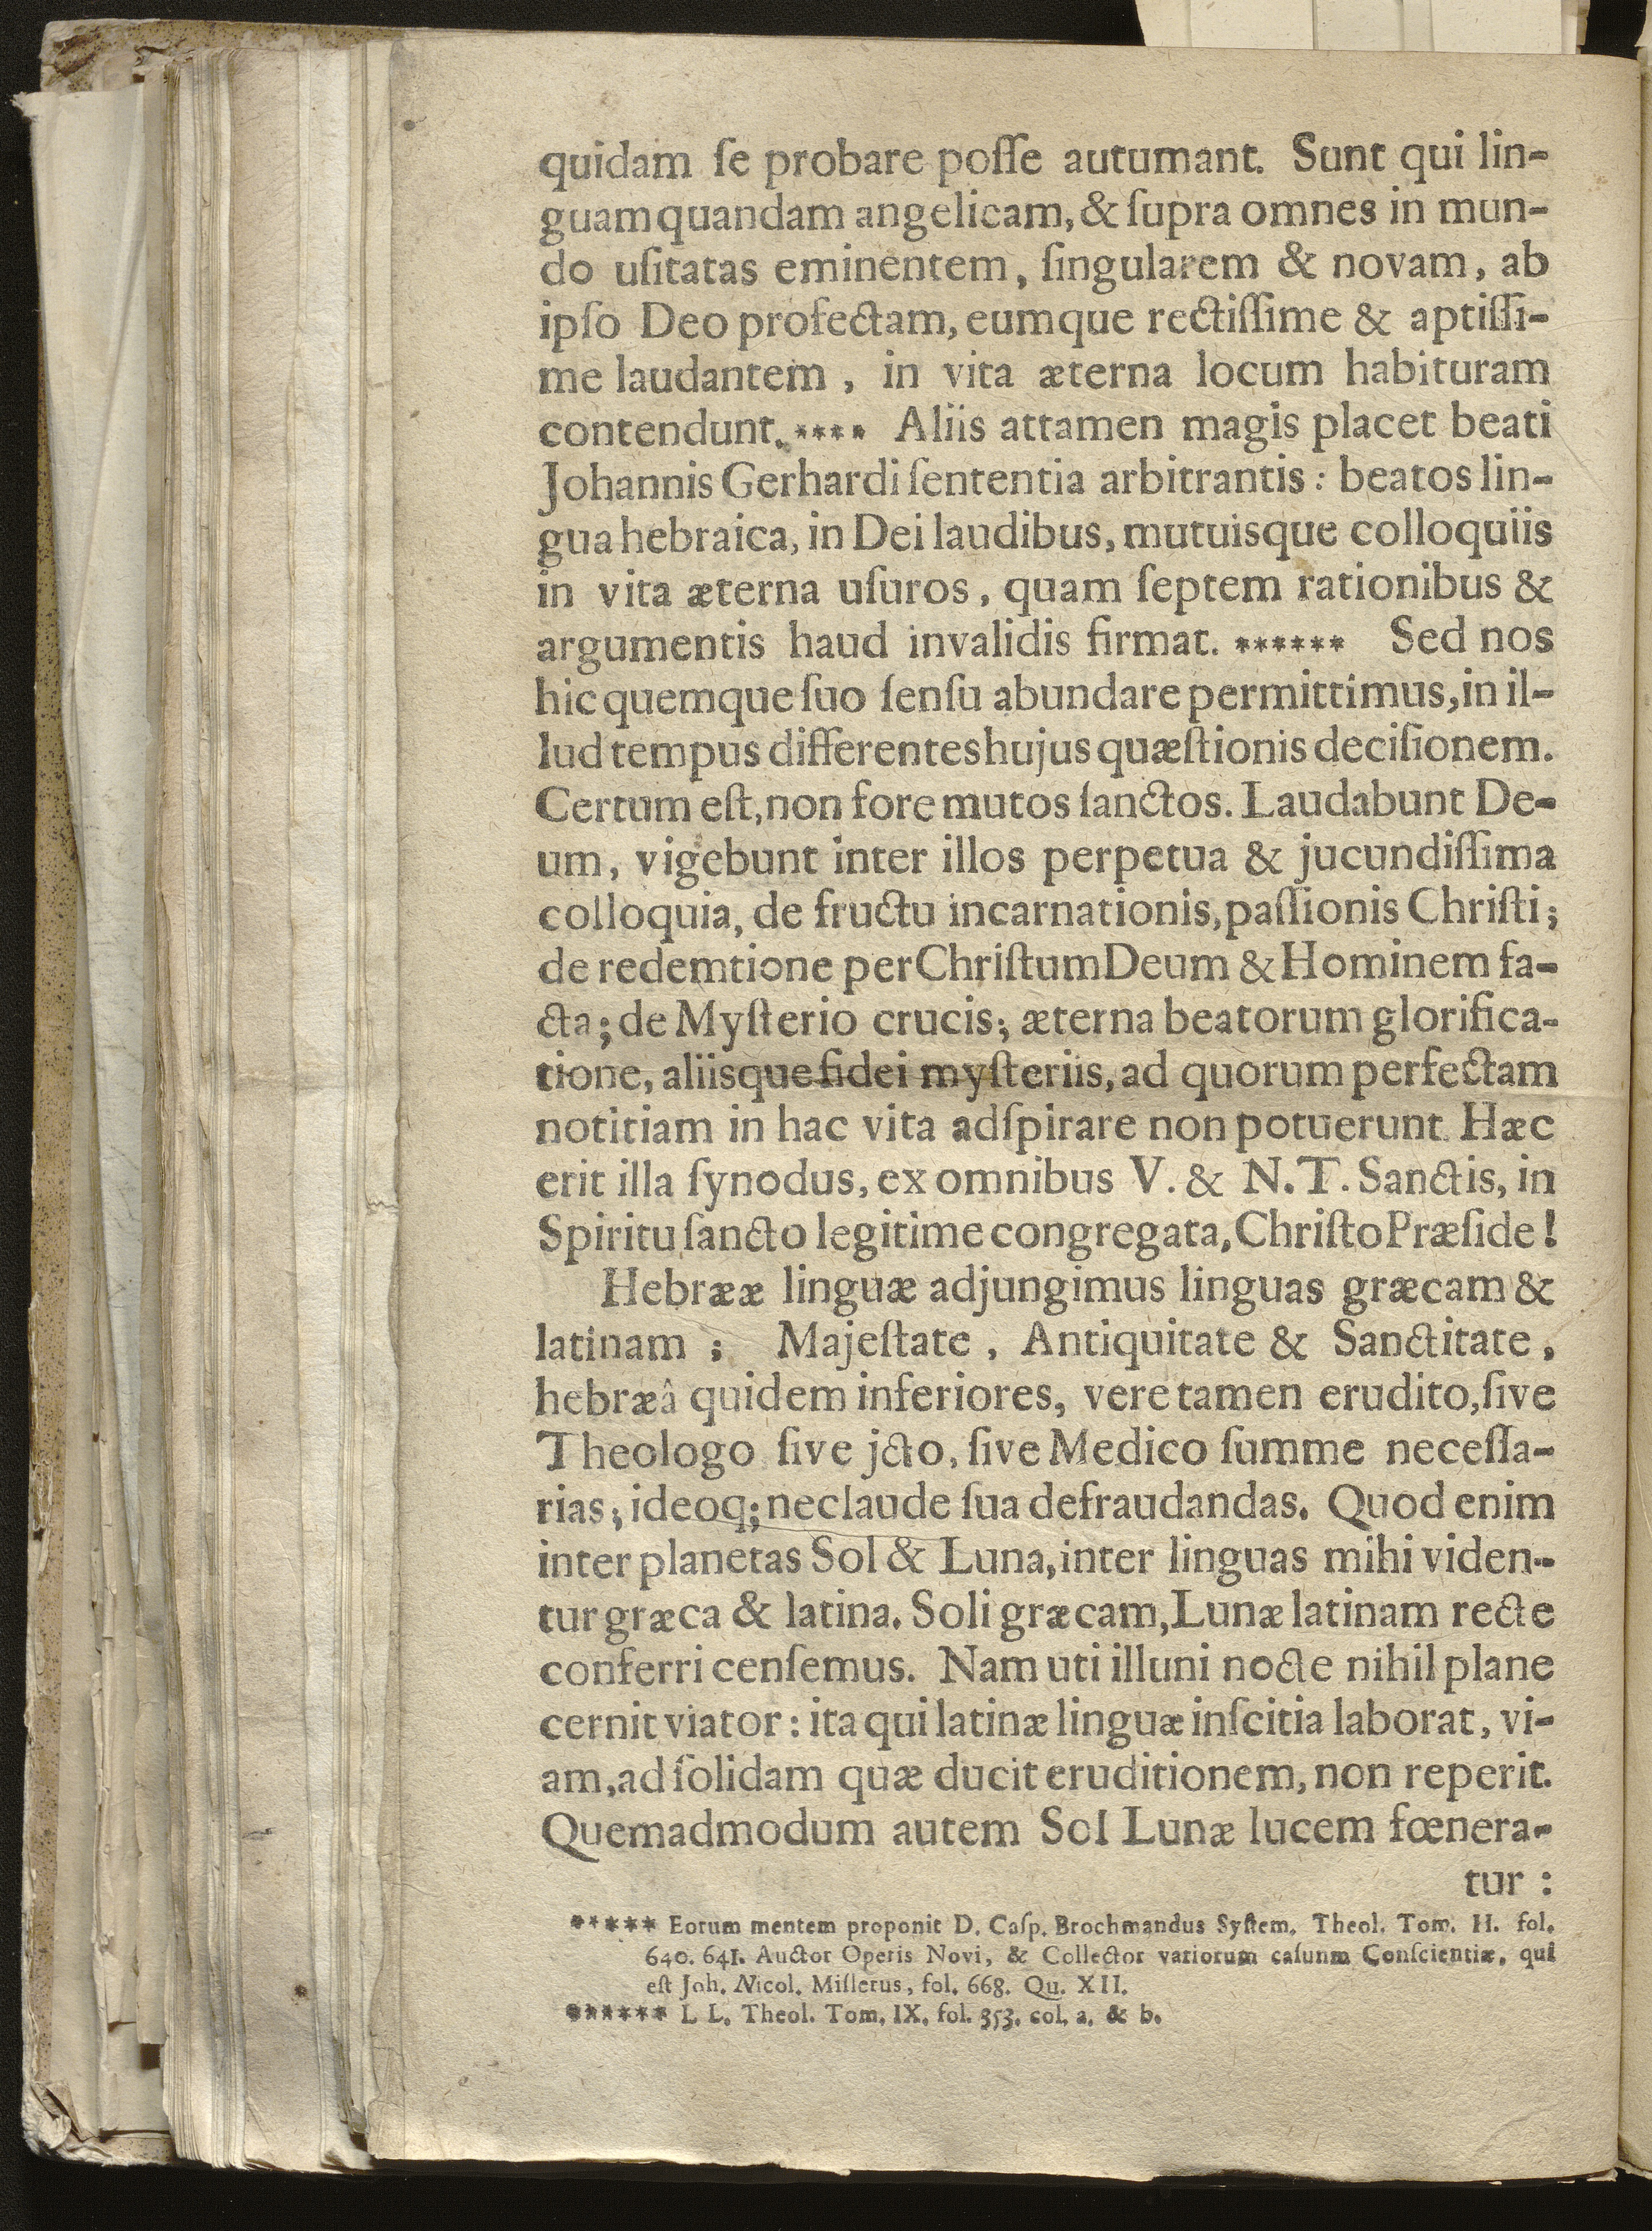 quidam ſe probare poſſe autumant. Sunt qui lin-
guam quandam angelicam, & ſupra omnes in mun-
do uſitatas eminentem, ſingularem & novam, ab
ipſo Deo profectam, eumque rectiſſime & aptiſſi-
me laudantem, in vita æterna locum habituram
contendunt. **** Aliis attamen magis placet beati
Johannis Gerhardi ſententia arbitrantis: beatos lin-
gua hebraica, in Dei laudibus, mutuisque colloquiis
in vita æterna uſuros, quam ſeptem rationibus &
argumentis haud invalidis firmat. ****** Sed nos
hic quemque ſuo ſenſu abundare permittimus, in il-
lud tempus differentes hujus quæſtionis deciſionem.
Certum eſt, non fore mutos ſanctos. Laudabunt De-
um, vigebunt inter illos perpetua & jucundiſſima
colloquia, de fructu incarnationis, paſſionis Chriſti;
de redemtione per Chriſtum Deum & Hominem fa-
cta; de Myſterio crucis; æterna beatorum glorifica-
tione, aliisque fidei myſteriis, ad quorum perfectam
notitiam in hac vita adſpirare non potuerunt. Hæc
erit illa ſynodus, ex omnibus V. & N. T. Sanctis, in
Spiritu ſancto legitime congregata, Chriſto Præſide!
Hebrææ linguæ adjungimus linguas græcam &
latinam; Majeſtate, Antiquitate & Sanctitate,
hebræâ quidem inferiores, vere tamen erudito, ſive
Theologo ſive jcto, ſive Medico ſumme neceſſa-
rias; ideoq; nec laude ſua defraudandas. Quod enim
inter planetas Sol & Luna, inter linguas mihi viden-
tur græca & latina. Soli græcam, Lunæ latinam recte
conferri cenſemus. Nam uti illuni nocte nihil plane
cernit viator: ita qui latinæ linguæ inſcitia laborat, vi-
am, ad ſolidam quæ ducit eruditionem, non reperit.
Quemadmodum autem Sol Lunæ lucem fœnera-
tur:
***** Eorum mentem proponit D. Caſp. Brochmandus Syſtem. Theol. Tom. II. fol.
640. 641. Auctor Operis Novi, & Collector variorum caſunm Conſcientiæ, qui
eſt Joh. Nicol. Miſlerus, fol. 668. Qu. XII.
****** L L. Theol. Tom. IX. fol. 353. col. a. & b.